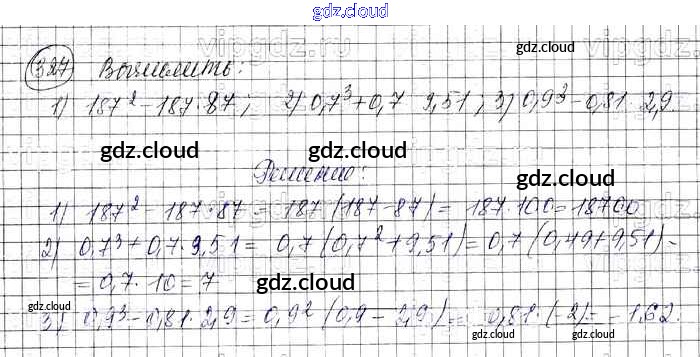 gdz.cloud
vipgdz.ru
gdz.cloud
327 Вычислить:
1) 187² - 187·87; 2) 0,7³ + 0,7 9,51; 3) 0,9³ - 0,81 2,9.
gdz.cloud gdz.cloud gdz.cloud
Решение:
gdz.cloud
1) 187² - 187·87 = 187(187-87) = 187·100 = 18700
2) 0,7³ + 0,7·9,51 = 0,7(0,7² + 9,51) = 0,7(0,49 + 9,51) =
= 0,7·10 = 7
gdz.cloud gdz.cloud gdz.cloud
3) 0,9³ - 0,81·2,9 = 0,9²(0,9 - 2,9) = 0,81·(-2) = -1,62.
gdz.cloud gdz.cloud